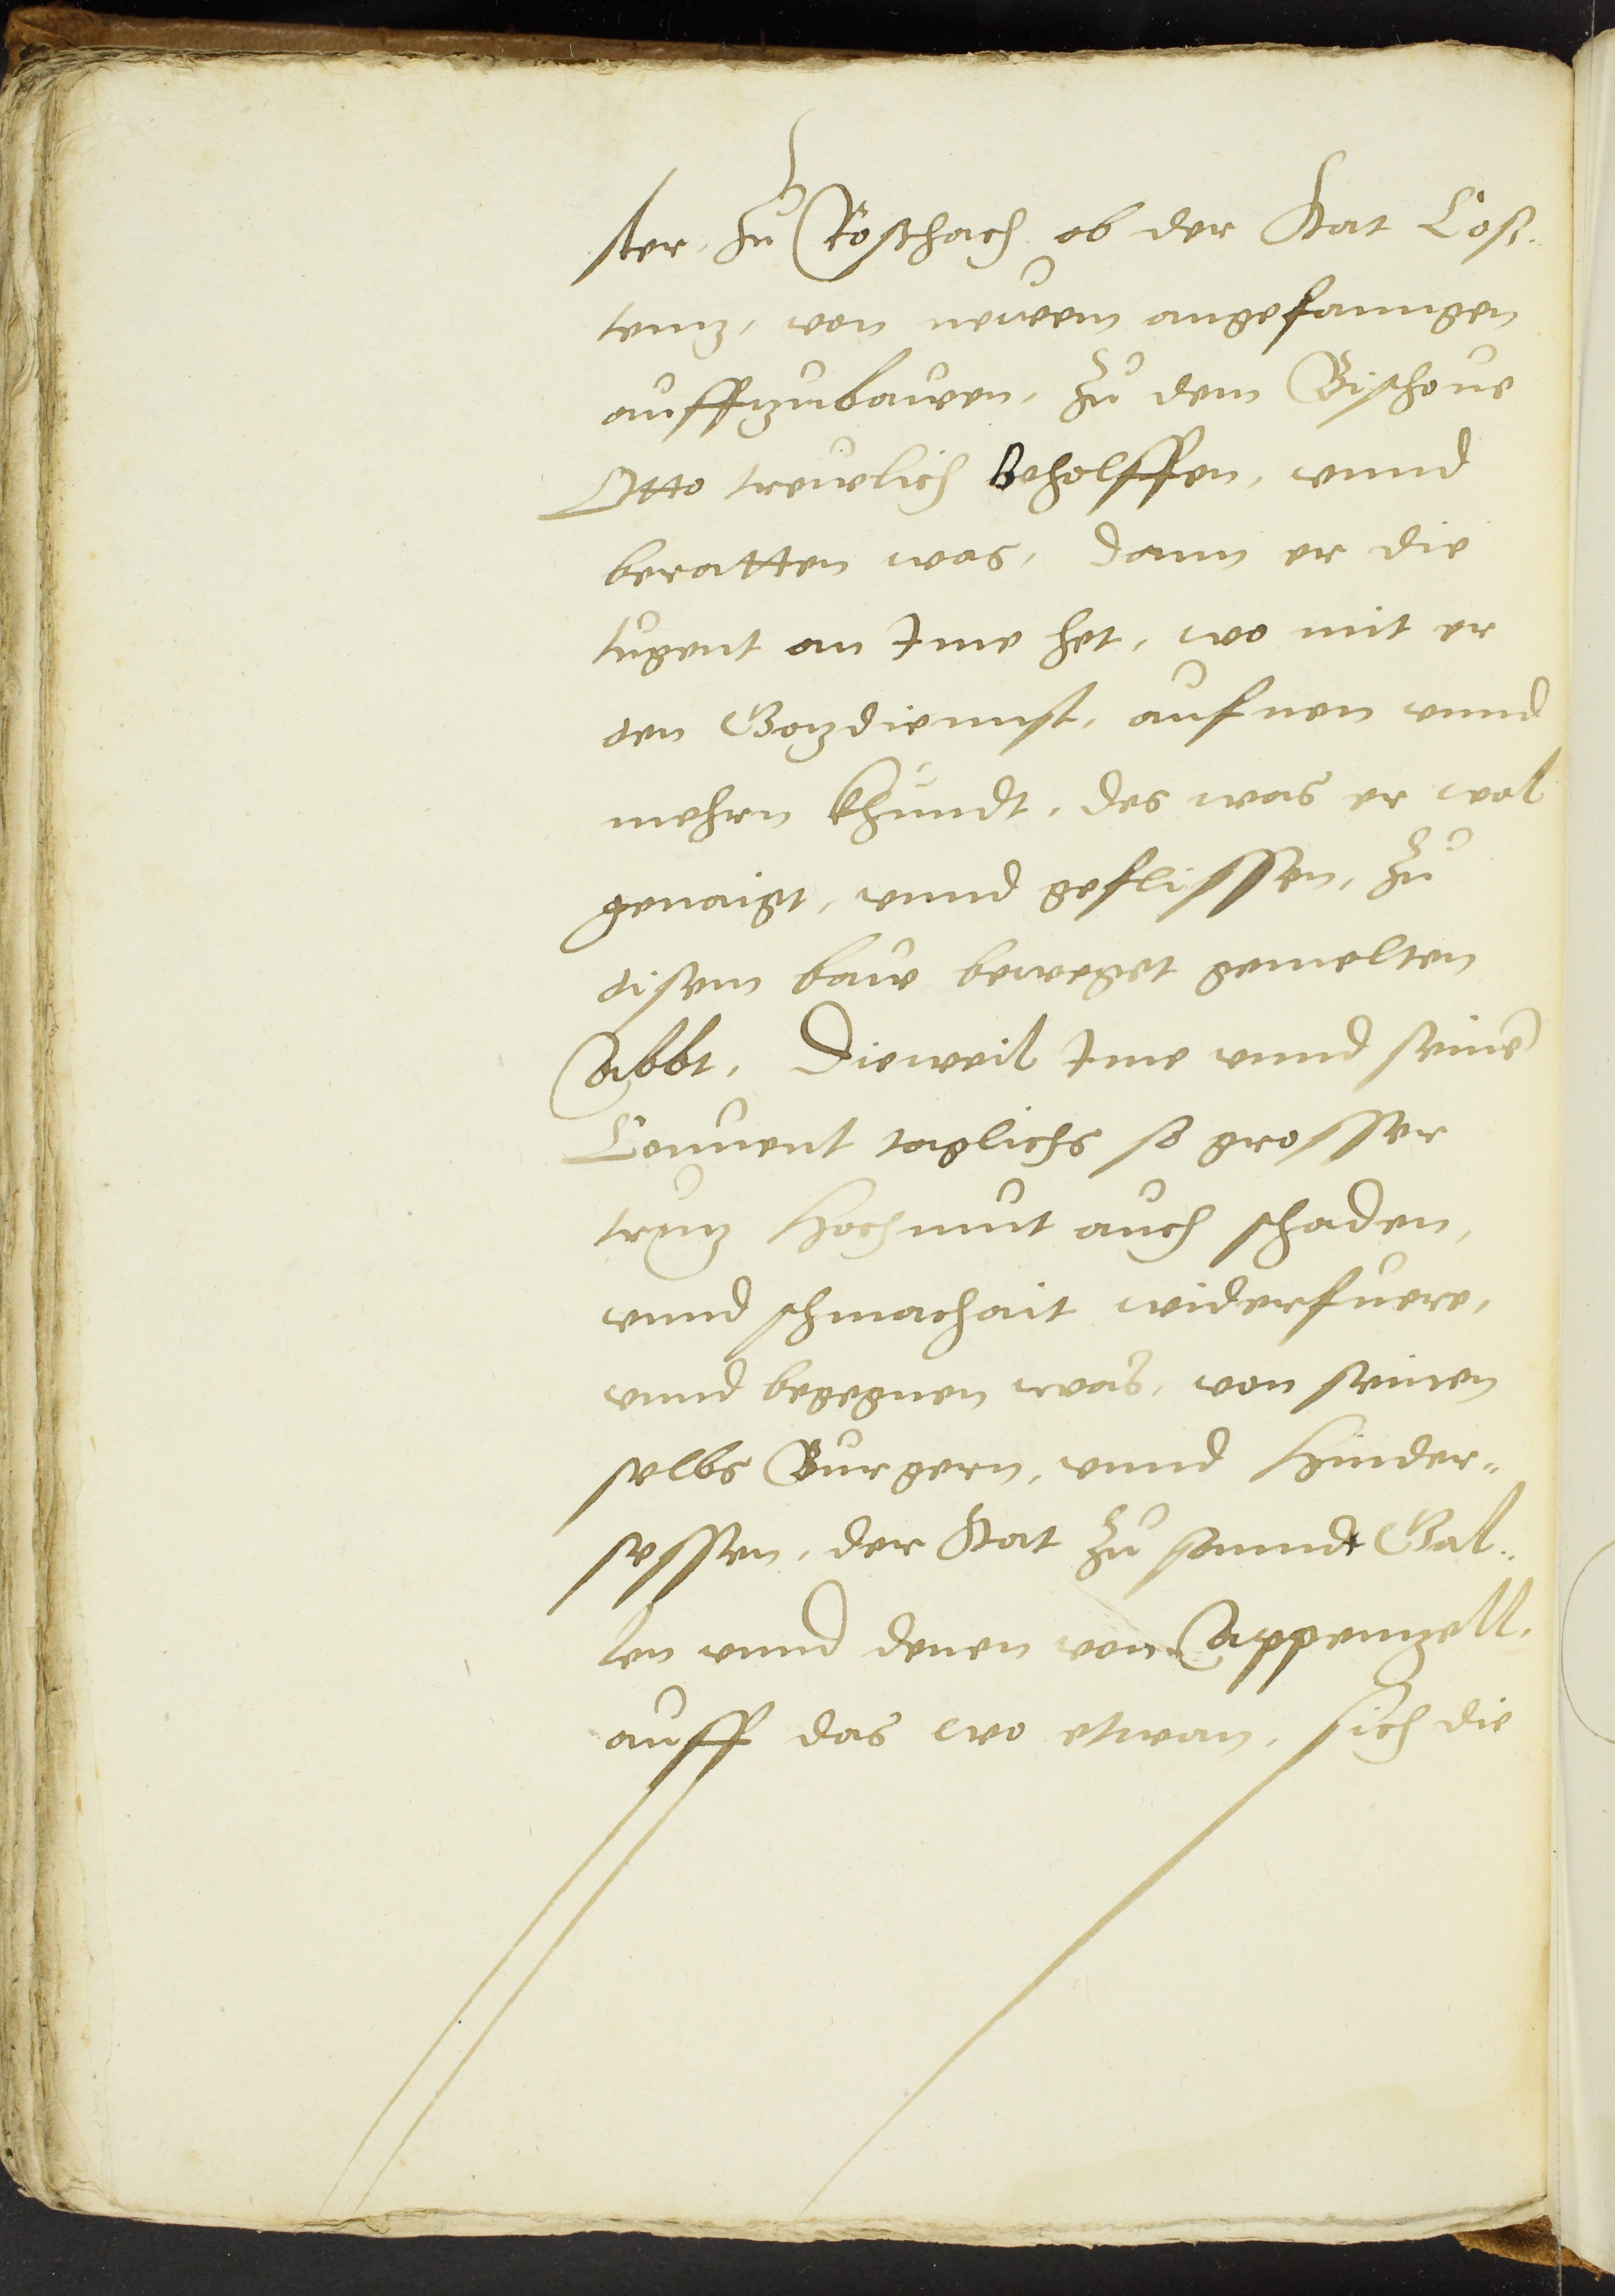 ster, zu Roschach ob der Stat Cos¬
tentz, von neuwem angefanngen
auffzubauwen, zu dem Bischoue
Otto treuwlich Beholffen, vnnd
beratten was, dann er die
tugent an Ime het, wo mit er
den Gotzdiennst, aufnen vnnd
mehrn khundt, des was er wol
genaigt, vnnd geflissen, zu
disem bauw beweget gemelten
Abbt, Dieweil Ime vnnd seinē
Conuent taglichs so grosser
trutz Hochmut auch schaden,
vnnd schmachait widerfuere,
vnnd begegnen was, von seinen
selbs Burgern, vnnd Hinder¬
sessen, der Stat zu Sannd Gal¬
len vnnd denen von Appenzell,
auff das wo etwan, sich die